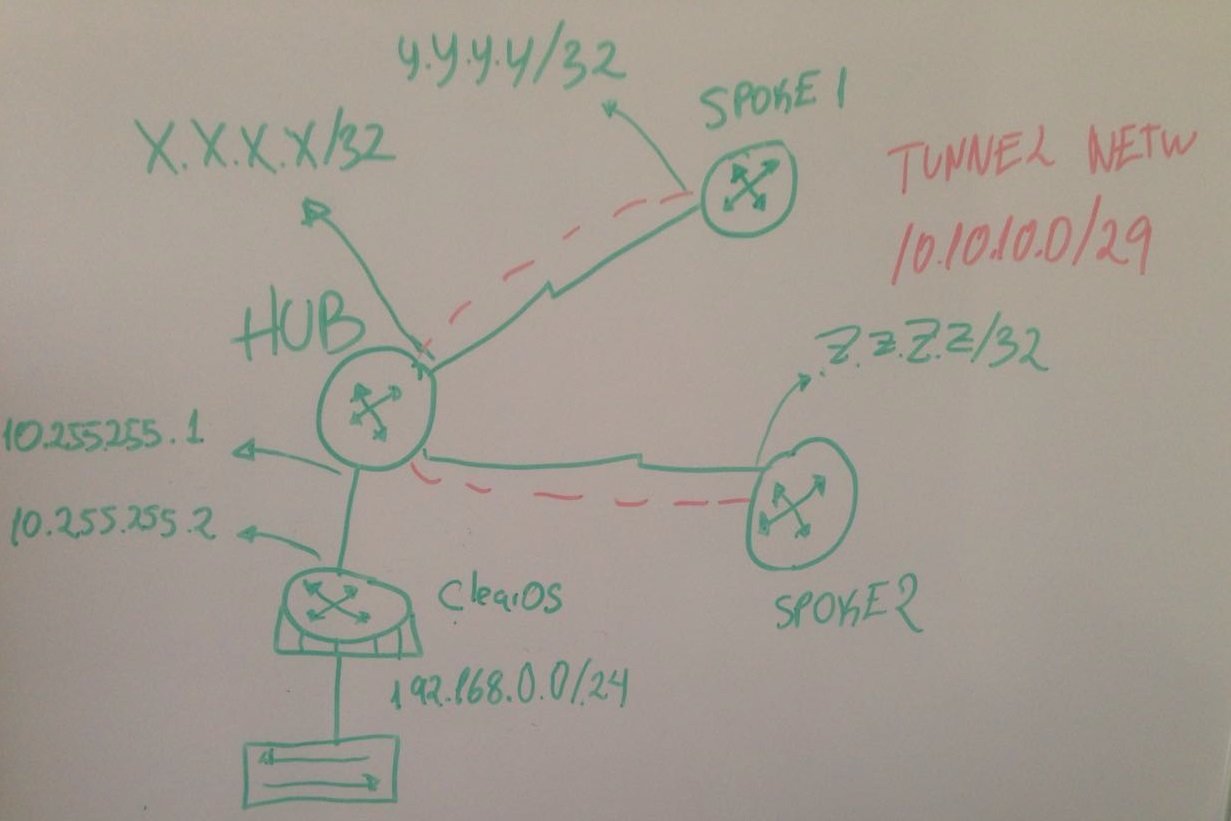 y.y.y.y/32
SPOKE 1
X.X.X.X/32
TUNNEL NETW
10.10.10.0/29
HUB
Z.Z.Z.Z/32
10.255.255.1
10.255.255.2
ClearOS
SPOKE2
192.168.0.0/24